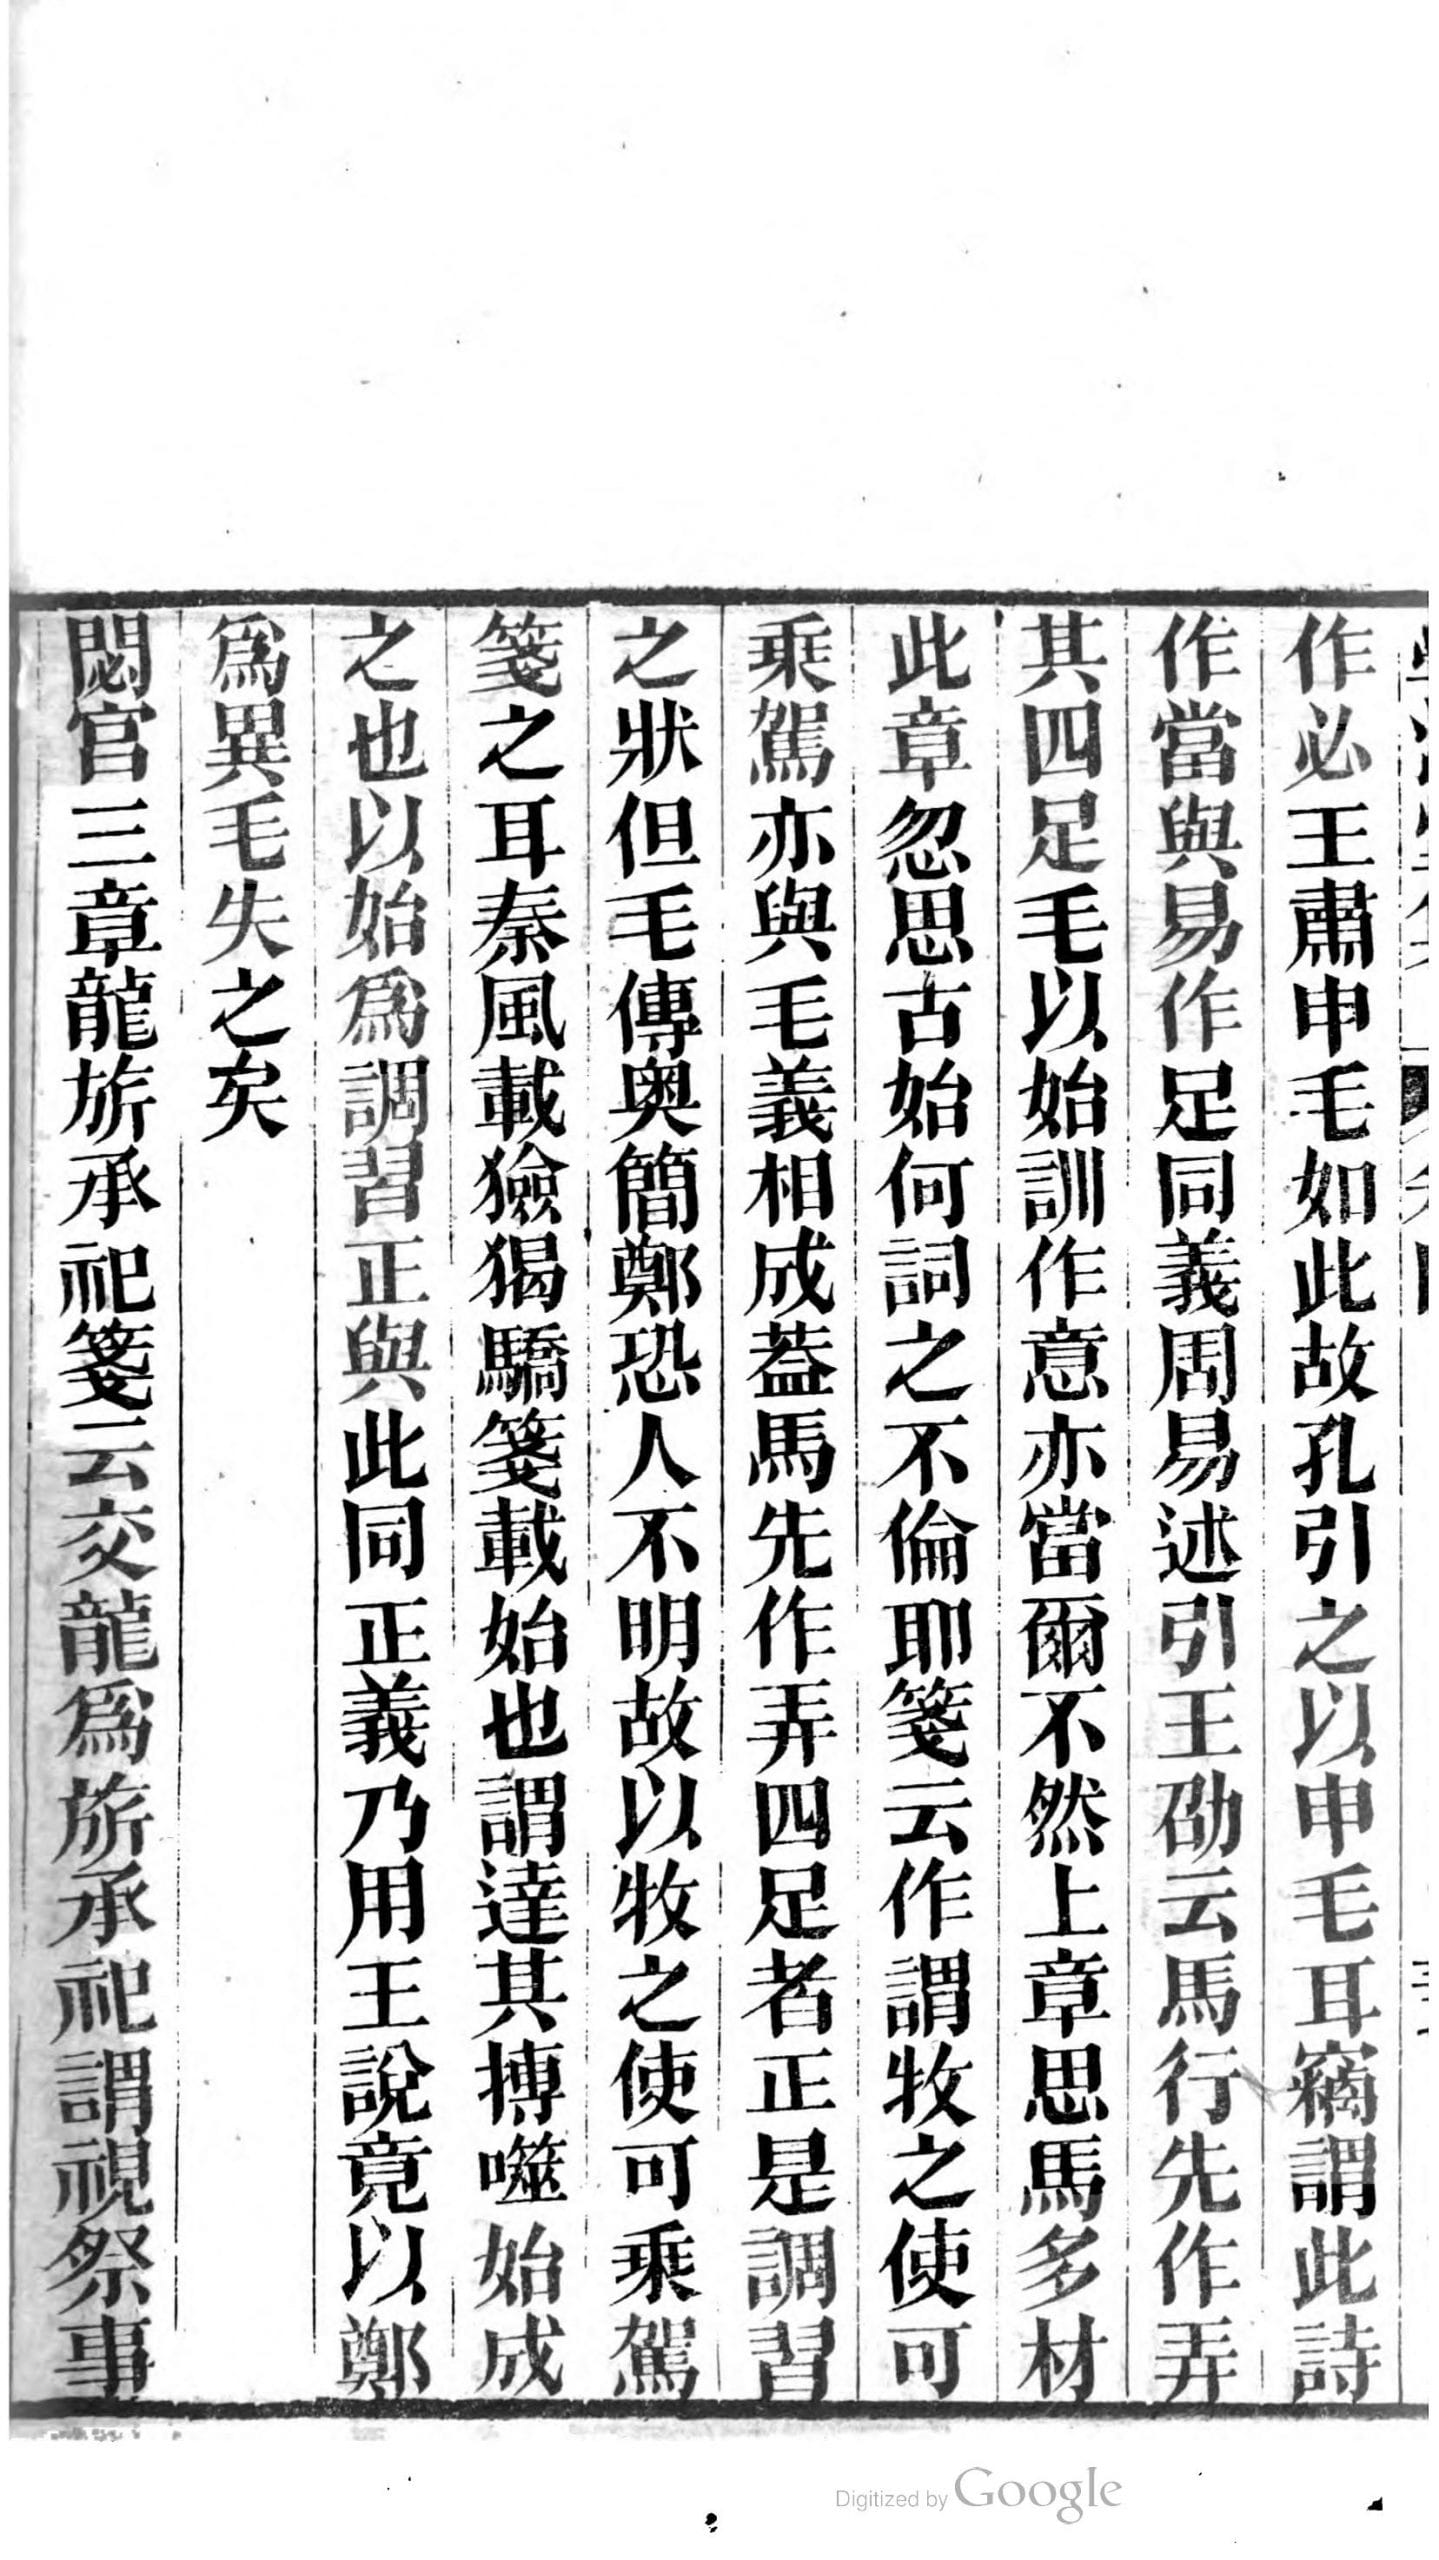 作必王肅申毛如此故孔引之以申毛耳竊謂此詩
作當與易作足同義周易述引王劭云馬行先作弄
其四足毛以始訓作意亦當爾不然上章思馬多材
此章忽思古始何詞之不倫耶箋云作謂牧之使可
乘駕亦與毛義相成葢馬先作弄四足者正是調習
之狀但毛傳奥簡鄭恐人不明故以牧之使可乘駕
箋之耳秦風載獫猲驕箋載始也謂達其搏噬始成
之也以始爲調習正與此同正義乃用王說竟以鄭
爲異毛失之矣
閟宫三章龍旂承祀箋云交龍爲旂承祀謂視祭事
Digitized by Google